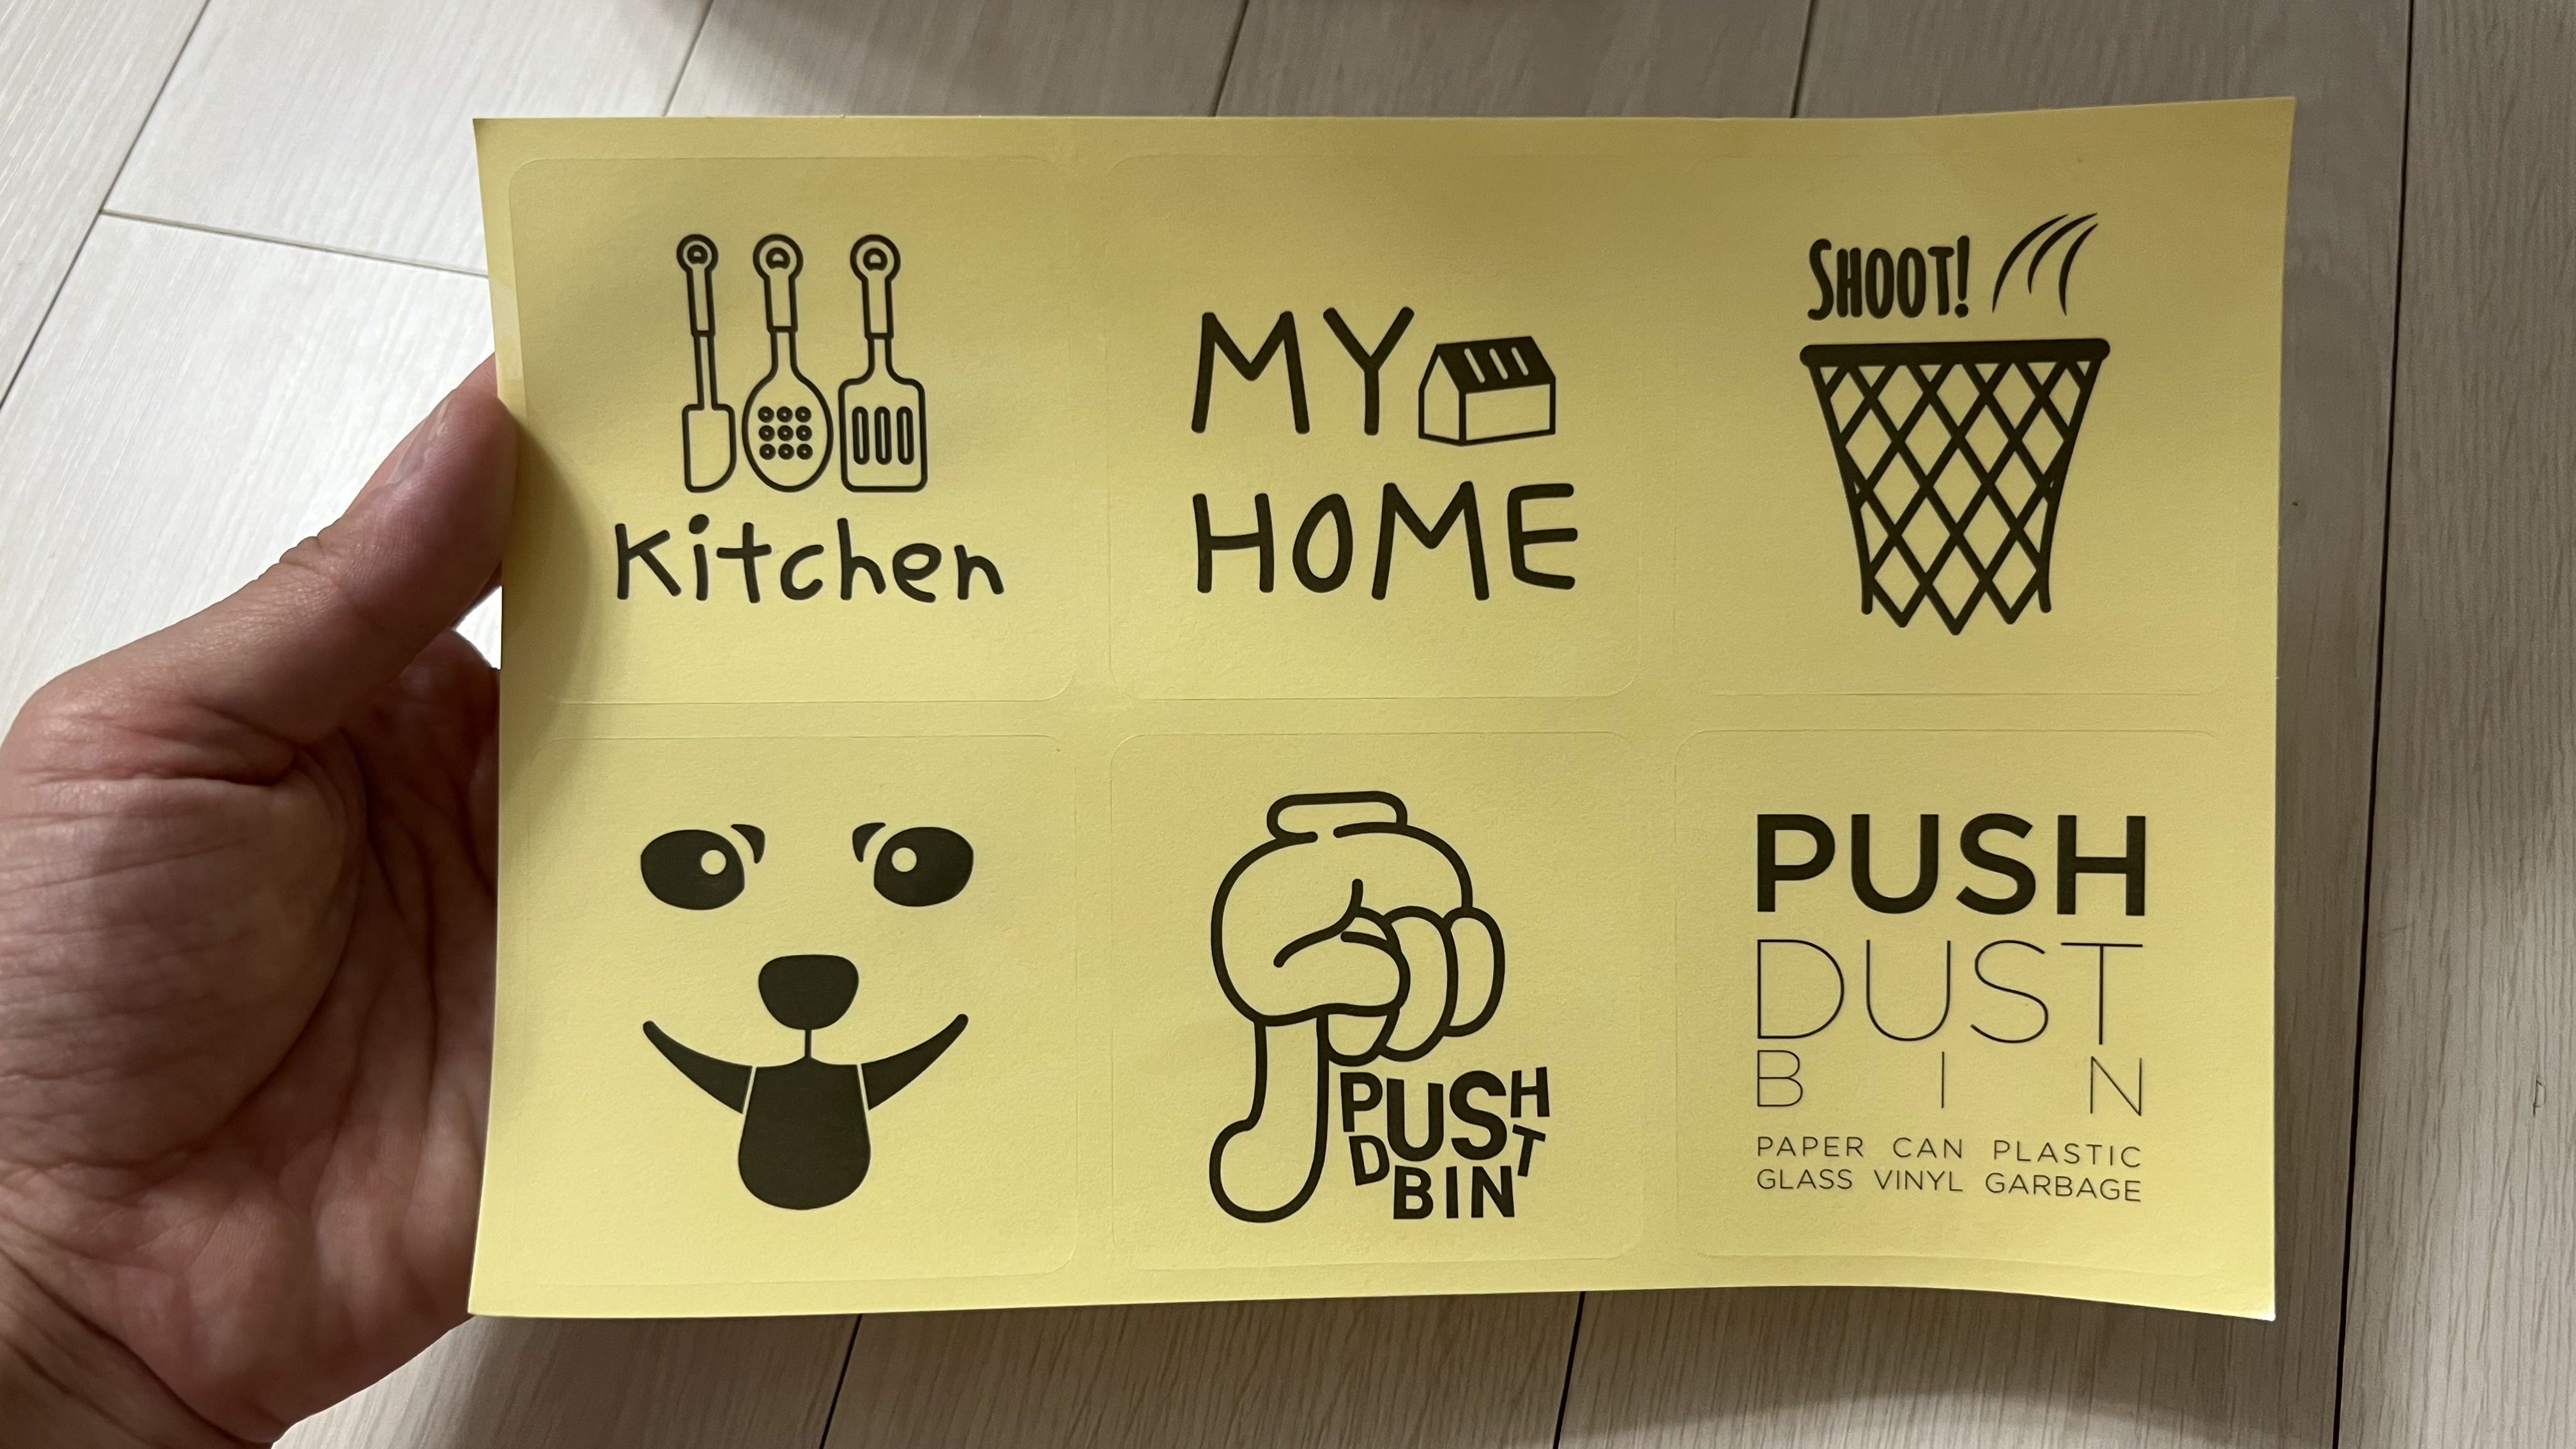 Kitchen
MY
HOME
SHOOT!
PUSH
DUST
BIN
PUSH
DUST
BIN
PAPER CAN PLASTIC
GLASS VINYL GARBAGE